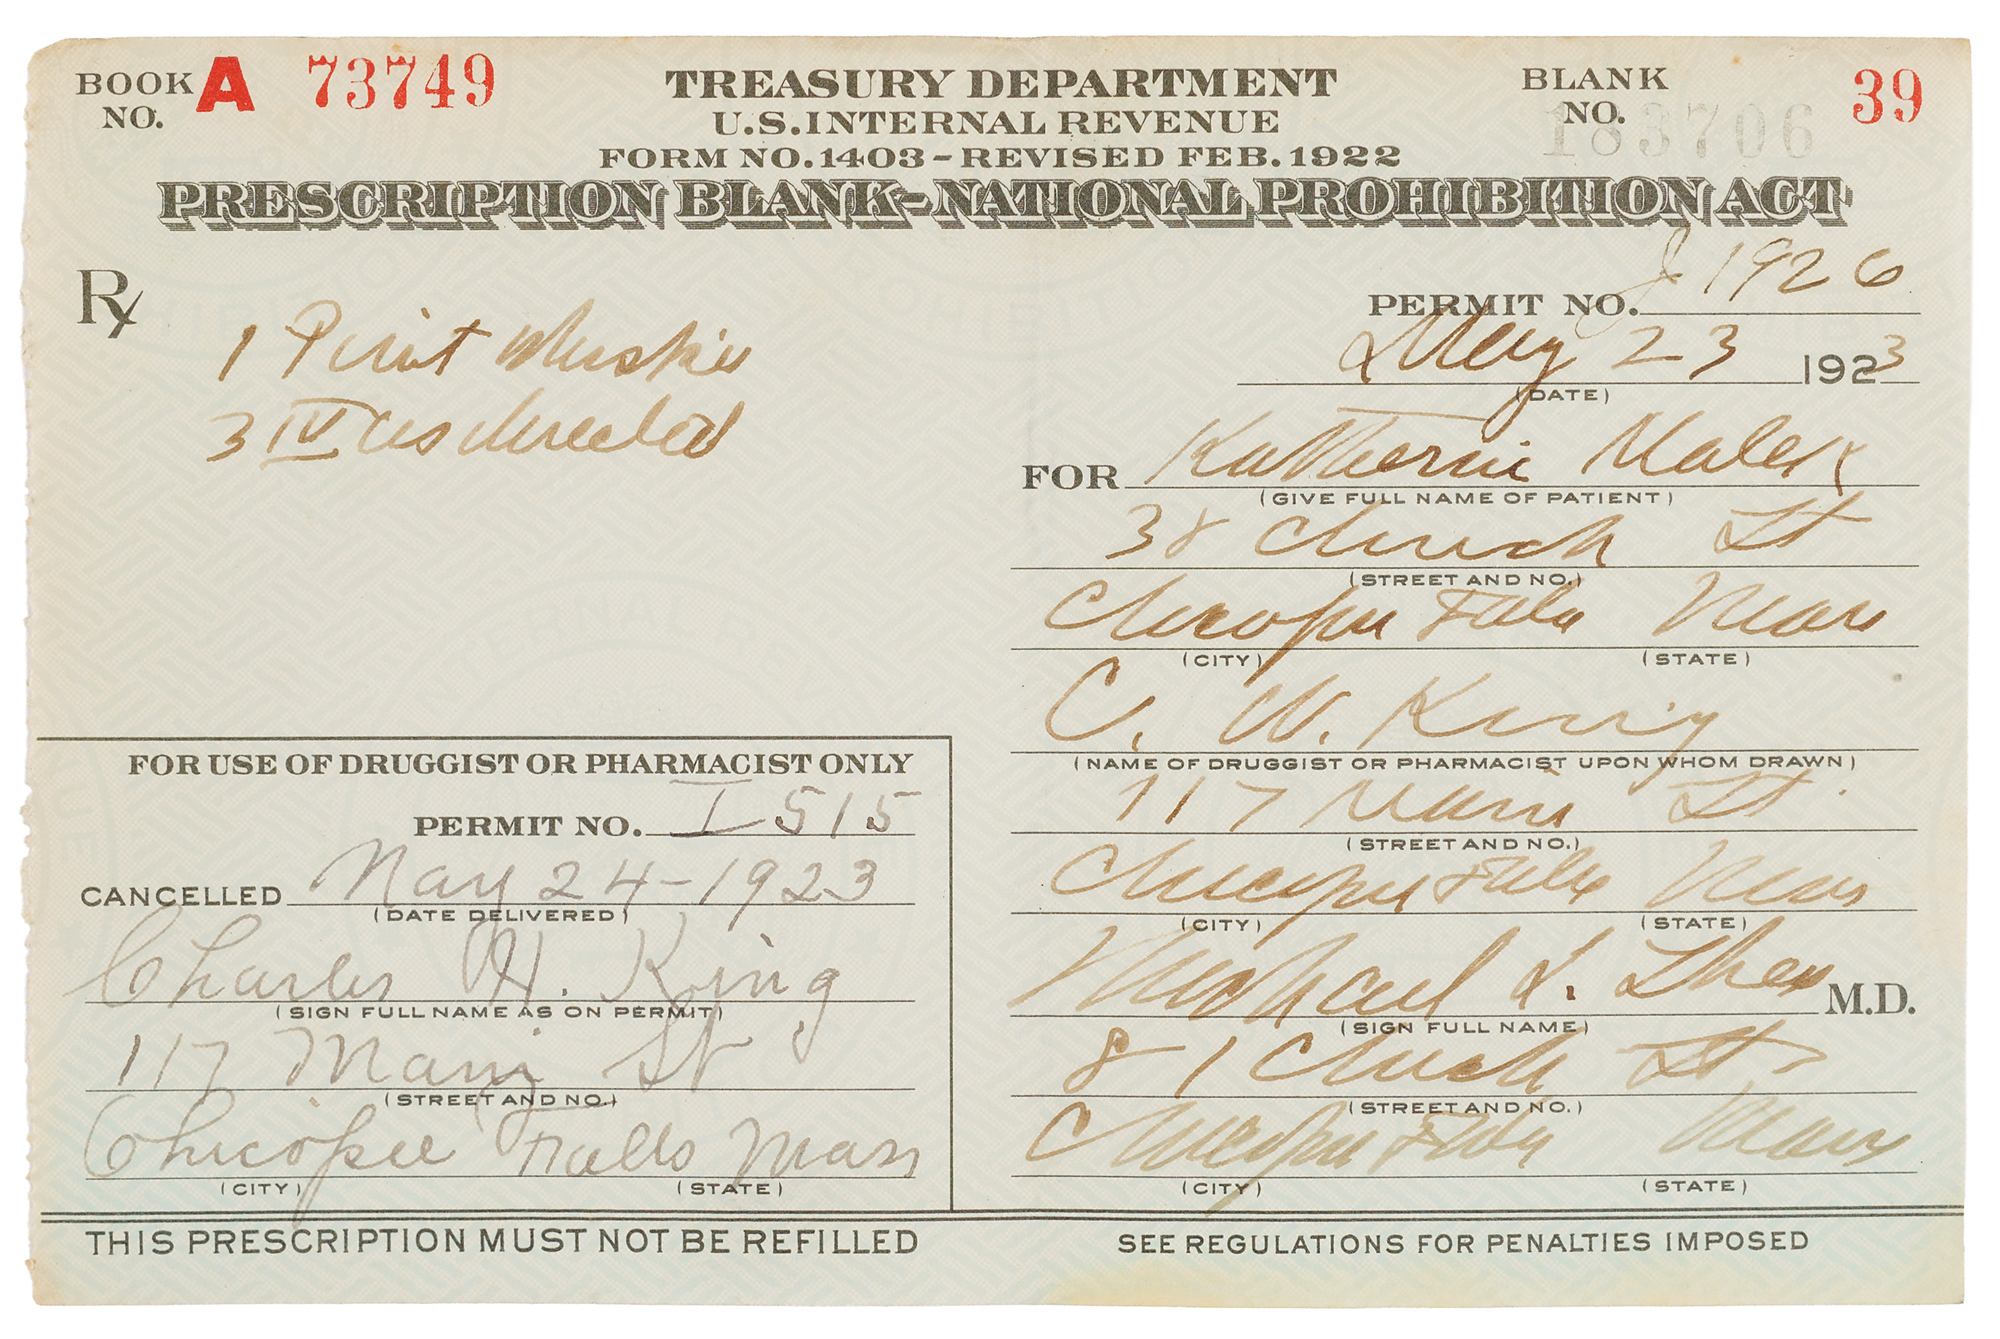 BOOK NO. A 73749
TREASURY DEPARTMENT
U.S. INTERNAL REVENUE
FORM NO. 1403 - REVISED FEB. 1922
BLANK NO. 39
183706
PRESCRIPTION BLANK-NATIONAL PROHIBITION ACT
Rx
1 Pint Whiskie
3 IV as directed
PERMIT NO. 1926
May 23 1923
(DATE)
FOR Katherine
(GIVE FULL NAME OF PATIENT)
38 Church St
(STREET AND NO.)
Chicopee Falls Mass
(CITY) (STATE)
C. W. King
(NAME OF DRUGGIST OR PHARMACIST UPON WHOM DRAWN)
117 Main St.
(STREET AND NO.)
Chicopee Falls Mass
(CITY) (STATE)
Michael J. Shea M.D.
(SIGN FULL NAME)
81 Church St.
(STREET AND NO.)
Chicopee Falls Mass
(CITY) (STATE)
FOR USE OF DRUGGIST OR PHARMACIST ONLY
PERMIT NO. I 515
CANCELLED May 24-1923
(DATE DELIVERED)
Charles H. King
(SIGN FULL NAME AS ON PERMIT)
117 Main St
(STREET AND NO.)
Chicopee Falls Mass
(CITY) (STATE)
THIS PRESCRIPTION MUST NOT BE REFILLED
SEE REGULATIONS FOR PENALTIES IMPOSED